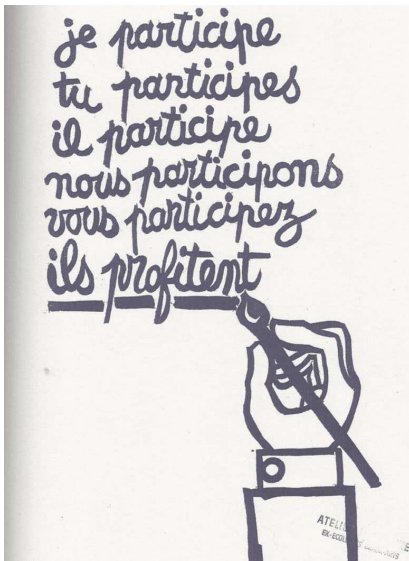 je participe
tu participes
il participe
nous participons
vous participez
ils profitent
EX-ECOLE